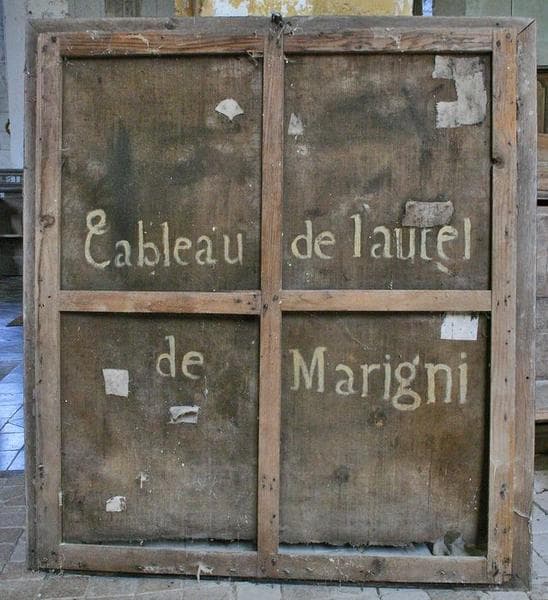 Tableau de l'autel
de Marigni